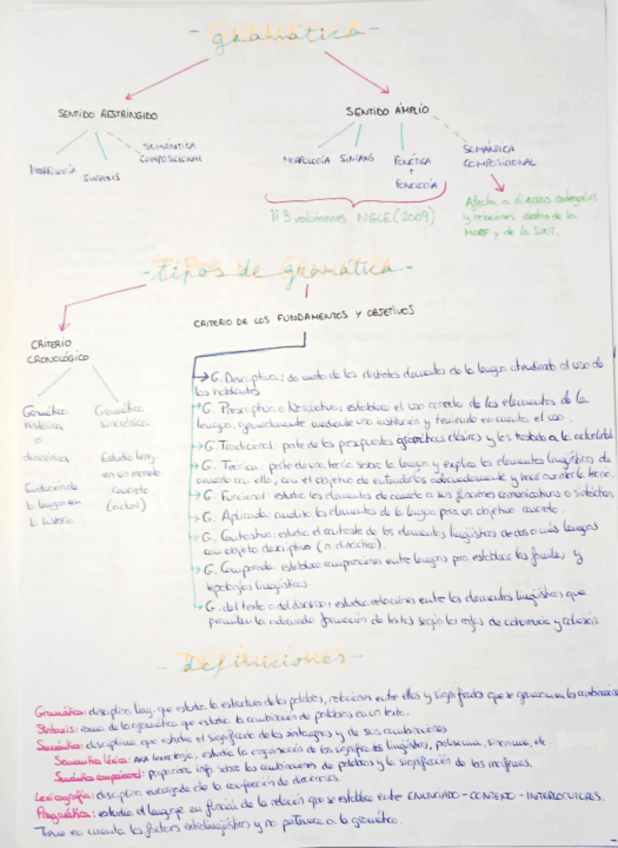 - gramática -
SENTIDO RESTRINGIDO
SENTIDO AMPLIO
MORFOLOGÍA
SINTAXIS
SEMÁNTICA
COMPOSICIONAL
MORFOLOGÍA SINTAXIS FONÉTICA
Y
FONOLOGÍA
SEMÁNTICA
COMPOSICIONAL
3 volúmenes NGLE (2009)
Afecta a diversas categorías
y relaciones dentro de la
MORF y de la SINT.
- tipos de gramática -
CRITERIO
CRONOLÓGICO
Gramática
histórica
o
diacrónica
Evolución de
la lengua en
la historia.
Gramática
sincrónica
Estudia leng
en un momento
concreto
(actual)
CRITERIO DE LOS FUNDAMENTOS Y OBJETIVOS
G. Descriptiva: da cuenta de los distintos elementos de la lengua atendiendo al uso de
los hablantes
G. Prescriptiva o Normativa: establece el uso correcto de los elementos de la
lengua, generalmente mediante una institución y teniendo en cuenta el uso.
G. Tradicional: parte de los presupuestos gramáticas clásicas y los traslada a la actualidad
G. Teórica: parte de una teoría sobre la lengua y explica los elementos lingüísticos de
acuerdo con ello, con el objetivo de entenderlos adecuadamente y hacer la teoría.
G. Funcional: estudia los elementos de acuerdo a sus funciones comunicativas o sintácticas
G. Aplicada: analiza los elementos de la lengua para un objetivo concreto.
G. Contrastiva: estudia el contraste de los elementos lingüísticos de dos o más lenguas
con objeto descriptivo (n. directivo).
G. Comparada: establece comparaciones entre lenguas para establecer las familias y
tipologías lingüísticas.
G. del texto o del discurso: estudia relaciones entre los elementos lingüísticos que
permiten la adecuada formación de textos según las reglas de coherencia y cohesión
- Definiciones -
Gramática: disciplina ling. que estudia la estructura de las palabras, relaciones entre ellas y significados que se generan en las combinaciones
Sintaxis: rama de la gramática que estudia la combinación de palabras en un texto.
Semántica: disciplina que estudia el significado de los sintagmas y de sus combinaciones
Semántica léxica: estudia la organización de los significados lingüísticos, polisemia, sinonimia, etc
Semántica composicional: proporciona info sobre las combinaciones de palabras y la significación de las mismas.
Lexicografía: disciplina encargada de la confección de diccionarios.
Pragmática: estudia el lenguaje en función de la relación que se establece entre ENUNCIADO - CONTEXTO - INTERLOCUTORES.
Tiene en cuenta los factores extralingüísticos y no pertenece a la gramática.